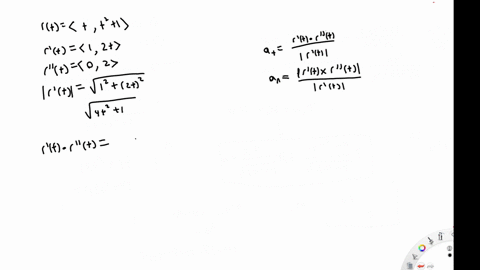 r(t) = < t, t² + 1 >
r'(t) = < 1, 2t >
r''(t) = < 0, 2 >
|r'(t)| = √(1² + (2t)²)
√(4t² + 1)
r'(t) · r''(t) =
a_t = r'(t) · r''(t) / |r'(t)|
a_n = |r'(t) × r''(t)| / |r'(t)|